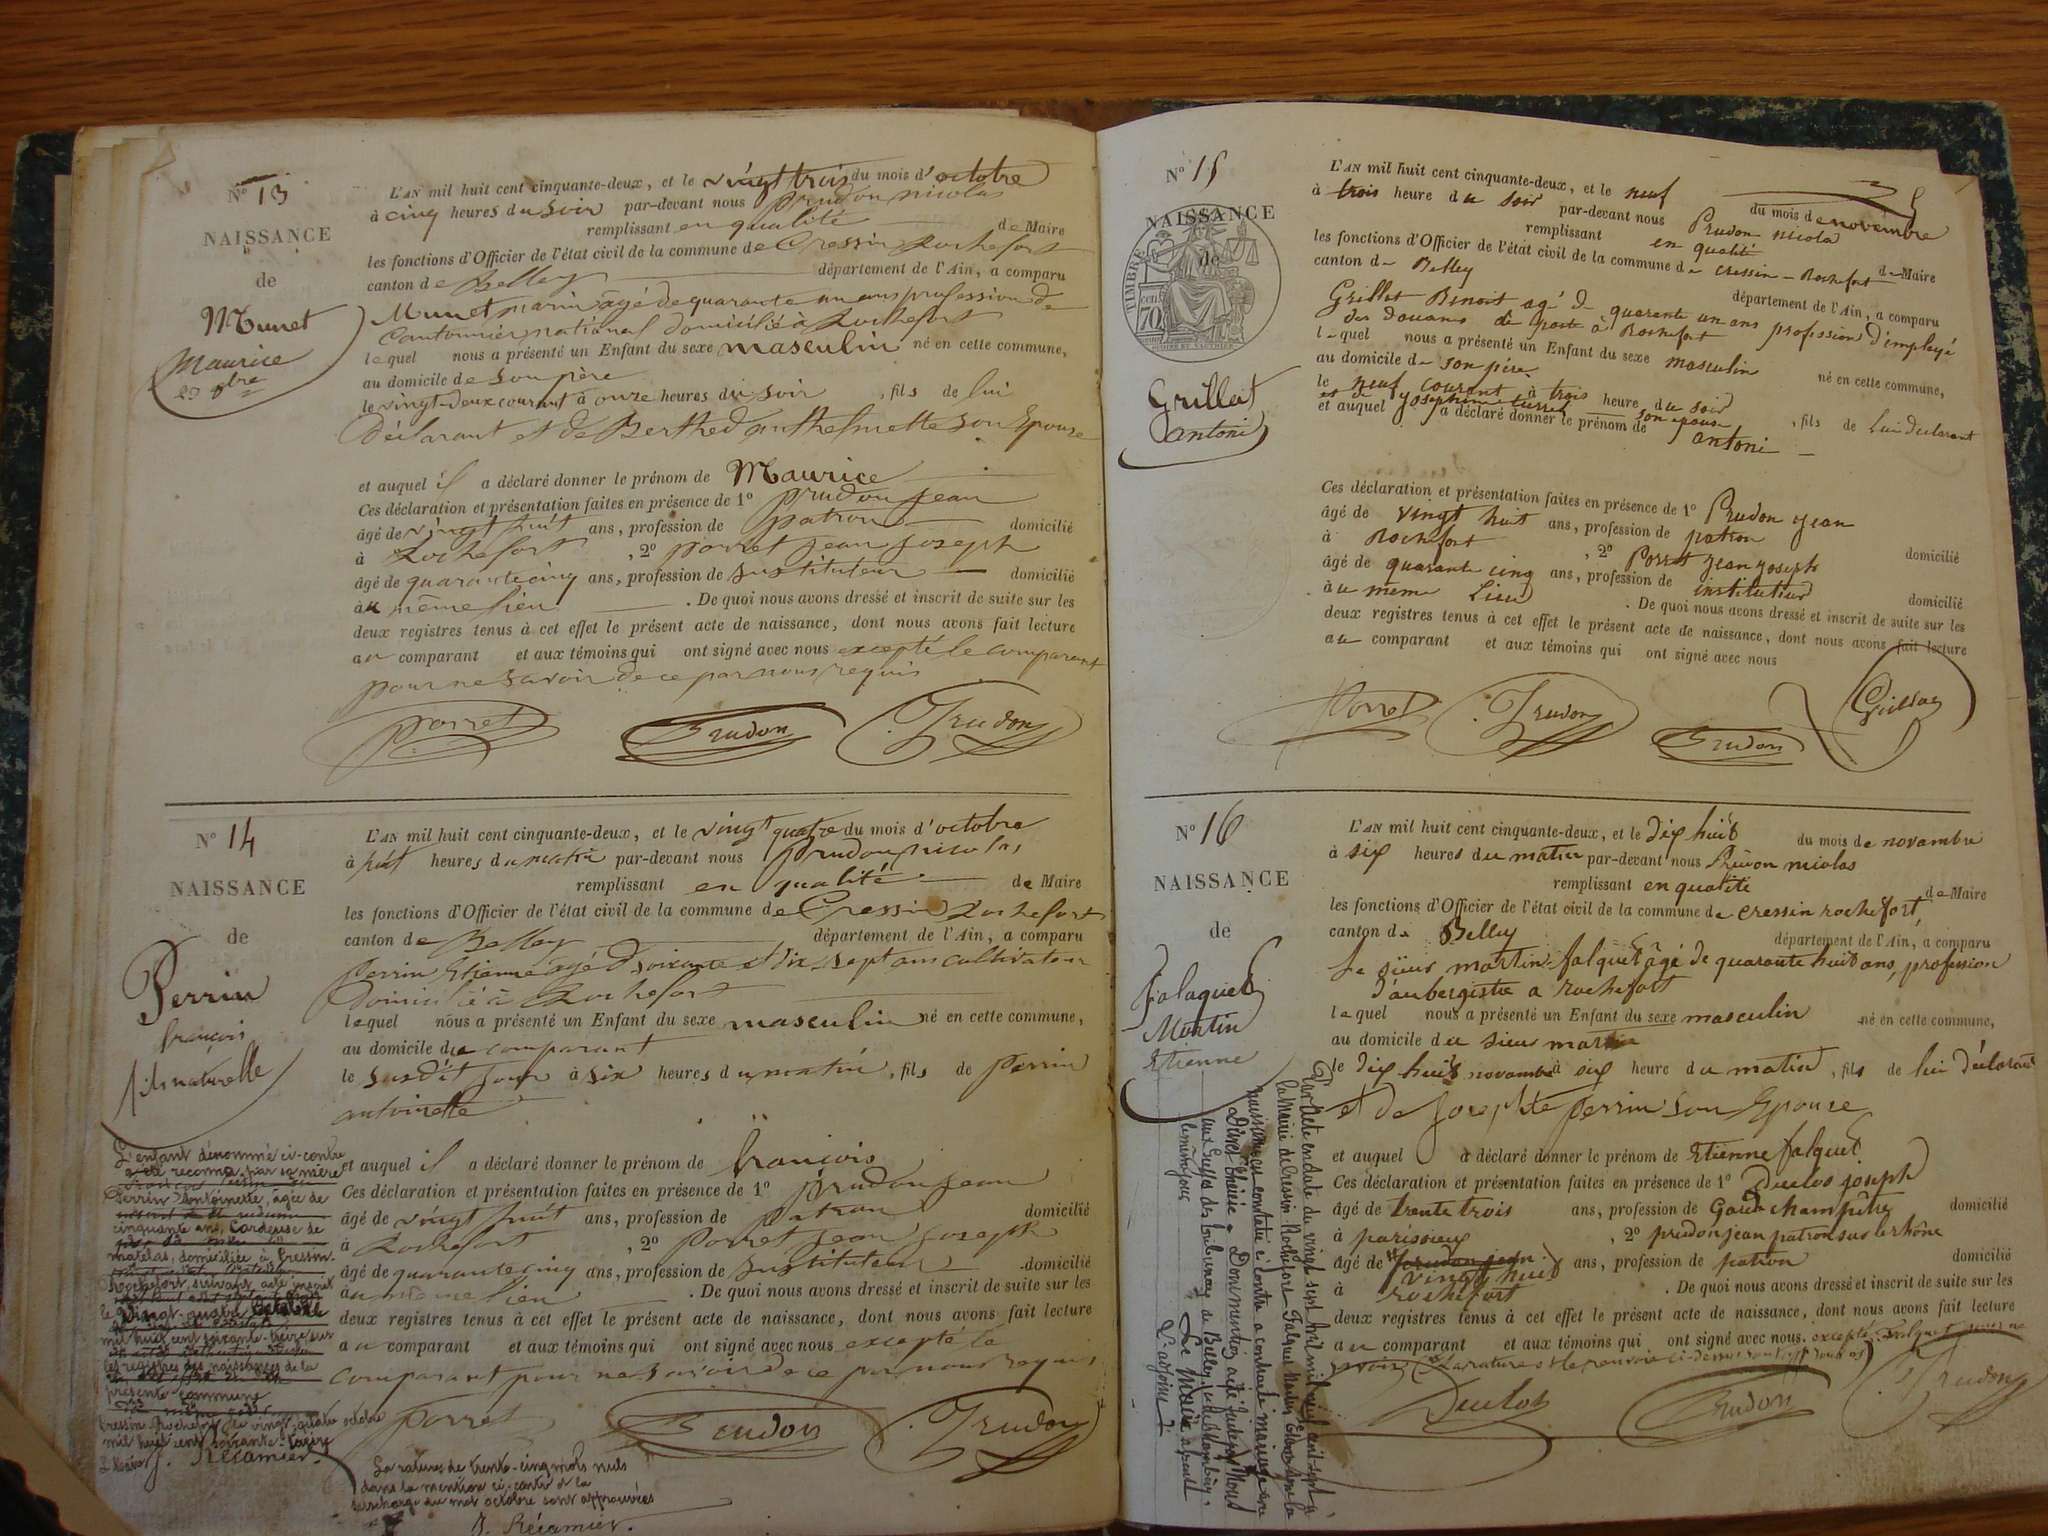 N° 13
NAISSANCE
de
Munet
Maurice
L'AN mil huit cent cinquante-deux, et le vingt trois du mois d'octobre
à cinq heures du soir par-devant nous prudon nicolas
remplissant en qualité de Maire
les fonctions d'Officier de l'état civil de la commune de Cressin Rochefort
canton de Belley département de l'Ain, a comparu
Munet marin âgé de quarante un ans profession de
Cantonnier national domicilié à Rochefort
lequel nous a présenté un Enfant du sexe masculin né en cette commune,
au domicile de son père
le vingt-deux courant à onze heures du soir, fils de lui
Déclarant et de Berthed anthelmette son Epouse
et auquel il a déclaré donner le prénom de Maurice
Ces déclaration et présentation faites en présence de 1° prudon jean
âgé de vingt huit ans, profession de patron domicilié
à Rochefort, 2° porret jean joseph
âgé de quarante cinq ans, profession de instituteur domicilié
au même lieu. De quoi nous avons dressé et inscrit de suite sur les
deux registres tenus à cet effet le présent acte de naissance, dont nous avons fait lecture
au comparant et aux témoins qui ont signé avec nous excepté le comparant
pour ne savoir de ce par nous requis
porret Prudon J. Prudon
N° 14
NAISSANCE
de
Perrin
françois
fils naturelle
L'AN mil huit cent cinquante-deux, et le vingt quatre du mois d'octobre
à huit heures du matin par-devant nous prudon nicolas
remplissant en qualité de Maire
les fonctions d'Officier de l'état civil de la commune de Cressin Rochefort
canton de Belley département de l'Ain, a comparu
Perrin Etienne agé de soixante et dix sept ans cultivateur
Domicilié à Rochefort
lequel nous a présenté un Enfant du sexe masculin né en cette commune,
au domicile du comparant
le susdit jour à six heures du matin, fils de perrin
antoinette
et auquel il a déclaré donner le prénom de françois
Ces déclaration et présentation faites en présence de 1° prudon jean
âgé de vingt huit ans, profession de patron domicilié
à Rochefort, 2° porret jean joseph
âgé de quarante cinq ans, profession de instituteur domicilié
au même lieu. De quoi nous avons dressé et inscrit de suite sur les
deux registres tenus à cet effet le présent acte de naissance, dont nous avons fait lecture
au comparant et aux témoins qui ont signé avec nous excepté le
comparant pour ne savoir de ce par nous requis
porret Prudon J. Prudon
L'enfant dénommé ci-contre
a été reconnu par sa mère
Perrin Antoinette, agée de
cinquante ans, Cardeuse de
matelas, domiciliée à Cressin-
Rochefort, suivant acte inscrit
le vingt-quatre octobre
mil huit cent soixante-treize sur
les registres des naissances de la
présente commune
Cressin Rochefort le vingt-quatre octobre
mil huit cent soixante-treize
J. Récamier.
La ratures de trente-cinq mots nuls
dans la mention ci-contre et la
surcharge du mot octobre sont approuvées
J. Récamier.
N° 15
NAISSANCE
de
TIMBRE
70
Grillot
antoni
L'AN mil huit cent cinquante-deux, et le neuf du mois de novembre
à trois heure du soir par-devant nous Prudon nicola
remplissant en qualité de Maire
les fonctions d'Officier de l'état civil de la commune de cressin-Rochefort
canton de Belley département de l'Ain, a comparu
Grillot Benoit agé de quarante un ans profession d'employé
des douanes de poste à Rochefort
lequel nous a présenté un Enfant du sexe masculin né en cette commune,
au domicile de son père
le neuf courant à trois heure du soir, fils de lui declarant
et de josephine son epouse
et auquel a déclaré donner le prénom de antoni
Ces déclaration et présentation faites en présence de 1° Prudon jean
âgé de vingt huit ans, profession de patron domicilié
à Rochefort, 2° Porret jean joseph
âgé de quarante cinq ans, profession de instituteur domicilié
au meme Lieu. De quoi nous avons dressé et inscrit de suite sur les
deux registres tenus à cet effet le présent acte de naissance, dont nous avons fait lecture
au comparant et aux témoins qui ont signé avec nous
Porret J. Prudon Prudon Grillot
N° 16
NAISSANCE
de
Falaquet
Martin
Etienne
L'AN mil huit cent cinquante-deux, et le dix huit du mois de novembre
à six heures du matin par-devant nous Prudon nicolas
remplissant en qualité de Maire
les fonctions d'Officier de l'état civil de la commune de cressin rochefort
canton de Belley département de l'Ain, a comparu
Le sieur martin falquet âgé de quarante huit ans, profession
d'aubergiste a rochefort
lequel nous a présenté un Enfant du sexe masculin né en cette commune,
au domicile du sieur martin
le dix huit novambre à six heure du matin, fils de lui déclarant
et de Josephte perrin son Epouse
et auquel a déclaré donner le prénom de Etienne falquet
Ces déclaration et présentation faites en présence de 1° Duclos joseph
âgé de trente trois ans, profession de Garde champêtre domicilié
à parissieux, 2° prudon jean patron sur le rhône
âgé de prudon jean vingt huit ans, profession de patron domicilié
à rochefort. De quoi nous avons dressé et inscrit de suite sur les
deux registres tenus à cet effet le présent acte de naissance, dont nous avons fait lecture
au comparant et aux témoins qui ont signé avec nous. excepté falquet pour ne
savoir
Duclos Prudon J. Prudon
Par acte en date du vingt sept
la Mairie de Cressin-Rochefort Falquet Martin Etienne
naissance est constatée ci-contre a contracté mariage
aux Greffes des tribunaux de Belley et de Chambéry,
le même jour
Le Maire
L'adjoint